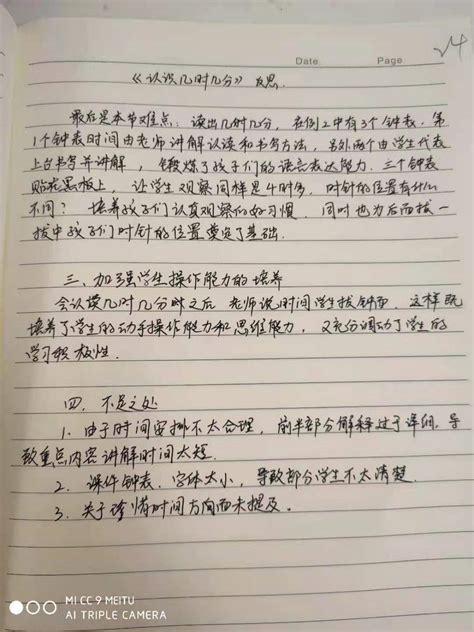 Date
Page
《认识几时几分》反思.
最后是本节难点：读出几时几分，在例2中有3个钟表.第
1个钟表时间由老师讲解认读和书写方法，另外两个由学生代表
上台书写并讲解，锻炼了孩子们的语言表达能力.三个钟表
贴在黑板上，让学生观察同样是4时多，时针的位置有什么
不同？培养孩子们认真观察的好习惯.同时也为后面拔一
拔中孩子们时针的位置奠定了基础.
三、加强学生操作能力的培养
会认读几时几分时之后 老师说时间学生拔钟面.这样既
培养了学生的动手操作能力和思维能力，又充分调动了学生的
学习积极性.
四、不足之处
1.由于时间安排不太合理，前半部分解释过于详细.导
致重点内容讲解时间太短.
2.课件钟表、字体太小，导致部分学生不太清楚.
3.关于珍惜时间方向面未提及.
MI CC 9 MEITU
AI TRIPLE CAMERA